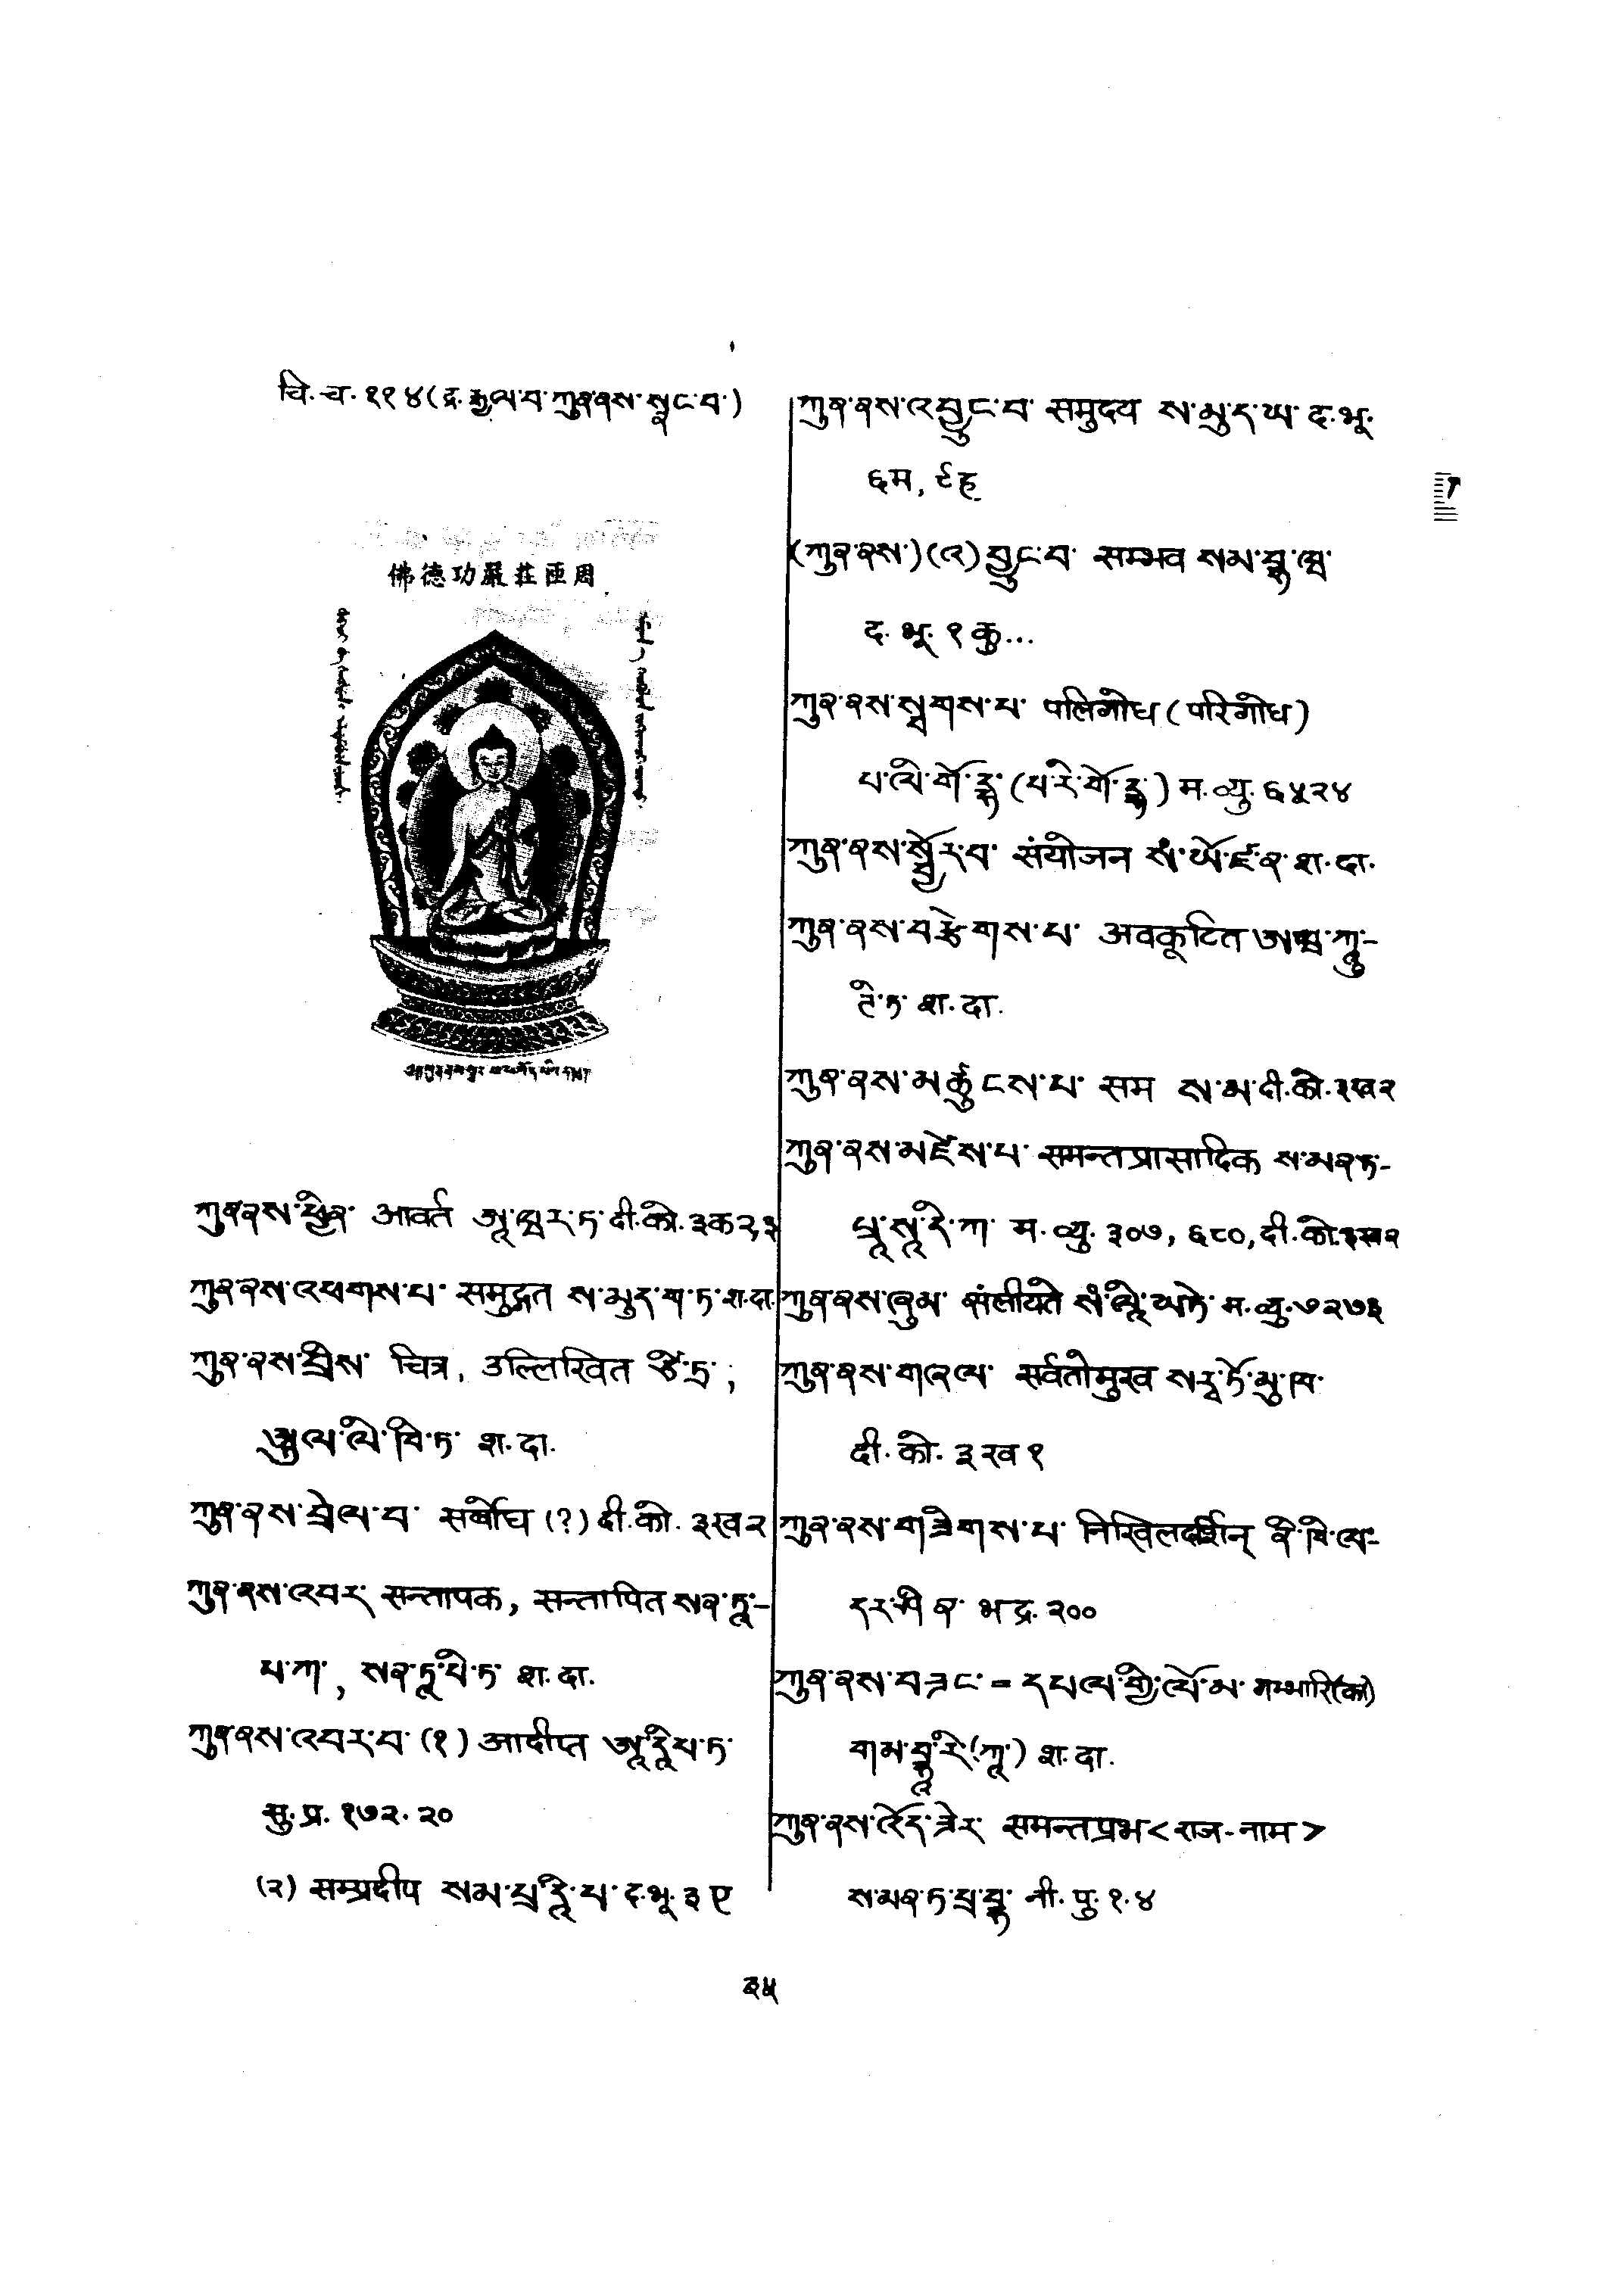 चि. च. ११४ (द्र. རྒྱལ་བ་ཀུན་ནས་སྣང་བ་)
佛德功嚴莊匝周
ཀུན་ནས་ཕྱིན་ आवर्त ཨཱ་ཝར་ཏ་ दी. को. ३क२,३
ཀུན་ནས་འཕགས་པ་ समुद्गत ས་མུད་ག་ཏ་ श. दा.
ཀུན་ནས་བྲིས་ चित्र, उल्लिखित ཙི་ཏྲ་,
ཨུལ་ལི་ཁི་ཏ་ श. दा.
ཀུན་ནས་བྲེལ་བ་ सर्वौघ (?) दी. को. ३ख२
ཀུན་ནས་འབར་ सन्तापक, सन्तापित སན་ཏཱ་-
པ་ཀ་, སན་ཏཱ་པི་ཏ་ श. दा.
ཀུན་ནས་འབར་བ་ (१) आदीप्त ཨཱ་དཱིཔ་ཏ་
सु. प्र. १७२. २०
(२) सम्प्रदीप སམ་པྲ་དཱི་པ་ द. भू. ३ए
ཀུན་ནས་འབྱུང་བ་ समुदय ས་མུ་ད་ཡ་ द. भू.
६म,
(ཀུན་ནས་) (འ) བྱུང་བ་ सम्भव སམ་བྷ་ཝ་
द. भू. १ कु...
ཀུན་ནས་སླགས་པ་ पलिगोध (परिगोध)
པ་ལི་གོ་དྷ་ (པ་རི་གོ་དྷ་) म. व्यु. ६५२४
ཀུན་ནས་སྦྱོར་བ་ संयोजन སཾ་ཡོ་ཛ་ན་ श. दा.
ཀུན་ནས་བརྩེགས་པ་ अवकूटित ཨ་ཝ་ཀཱུ་-
ཊི་ཏ་ श. दा.
ཀུན་ནས་མཚུངས་པ་ सम ས་མ་ दी. को. ३ख२
ཀུན་ནས་མཛེས་པ་ समन्तप्रासादिक ས་མན་ཏ་-
པྲཱ་སཱ་དི་ཀ་ म. व्यु. ३०७, ६८०, दी. को. ३ख२
ཀུན་ནས་ཞུམ་ संलीयते སཾ་ལཱི་ཡ་ཏེ་ म. व्यु. ७२७३
ཀུན་ནས་གཞལ་ सर्वतोमुख སརྦ་ཏོ་མུ་ཁ་
दी. को. ३ख१
ཀུན་ནས་གཟིགས་པ་ निखिलदर्शिन् ནི་ཁི་ལ་-
དར་ཤི་ན་ भद्र. २००
ཀུན་ནས་བཟང་ = དཔལ་གྱི་ལོ་མ་ गम्भारि(का)
གམ་བྷཱ་རི་(ཀཱ་) श. दा.
ཀུན་ནས་འོད་ཟེར་ समन्तप्रभ < राज-नाम >
ས་མན་ཏ་པྲ་བྷ་ नी. पु. १.४
३५